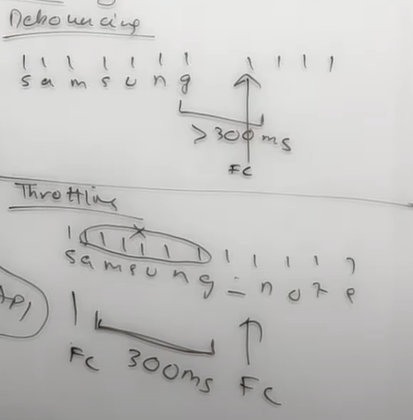 Debouncing
s a m s u n g
> 300 ms
FC
Throttling
s a m s u n g _ n o t e
API
FC 300ms FC